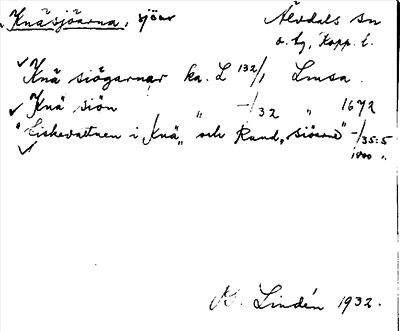 Knäsjöarna, sjöar Älvdals sn
o. tg, Kopp. l.
Knä siögarnar ka. L 132/1 Lmsa.
Knä siön " -/32 " 1672
"Fiskevattnen i Knä„ och Rand„ siöarne" -/35:5
1800 "
Lindén 1932.